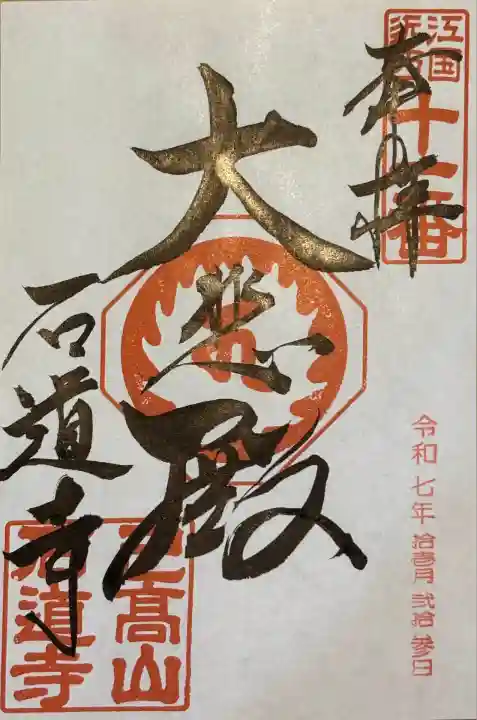 奉拝
江国
十一番
大悲殿
石道寺
髙山
石道寺
令和七年 拾壹月 貳拾參日